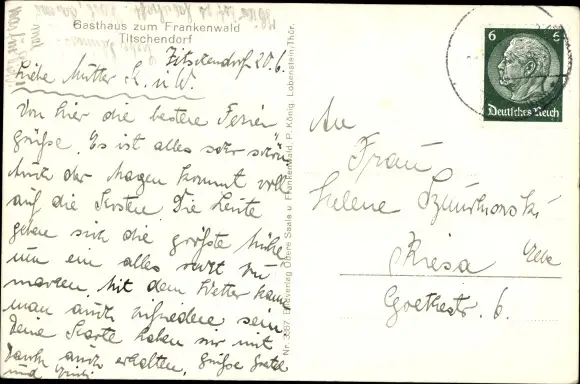 Gasthaus zum Frankenwald
Titschendorf
Titschendorf 20.6.
Liebe Mutter L. u. W.
Von hier die besten Ferien
grüße. Es ist alles sehr schön
Auch der Magen kommt voll
auf die Kosten. Die Leute
geben sich die größte Mühe
um ein alles recht zu
machen. Mit dem Wetter kann
man auch zufrieden sein
Deine Karte haben wir mit
Dank auch erhalten. Grüße Gretel
und
Nr. 3367. Bildverlag Obere Saale u. Frankenwald, P. König, Lobenstein-Thür.
6 6
Deutsches Reich
An
Frau
Helene
Riesa Elbe
Goethestr. 6.